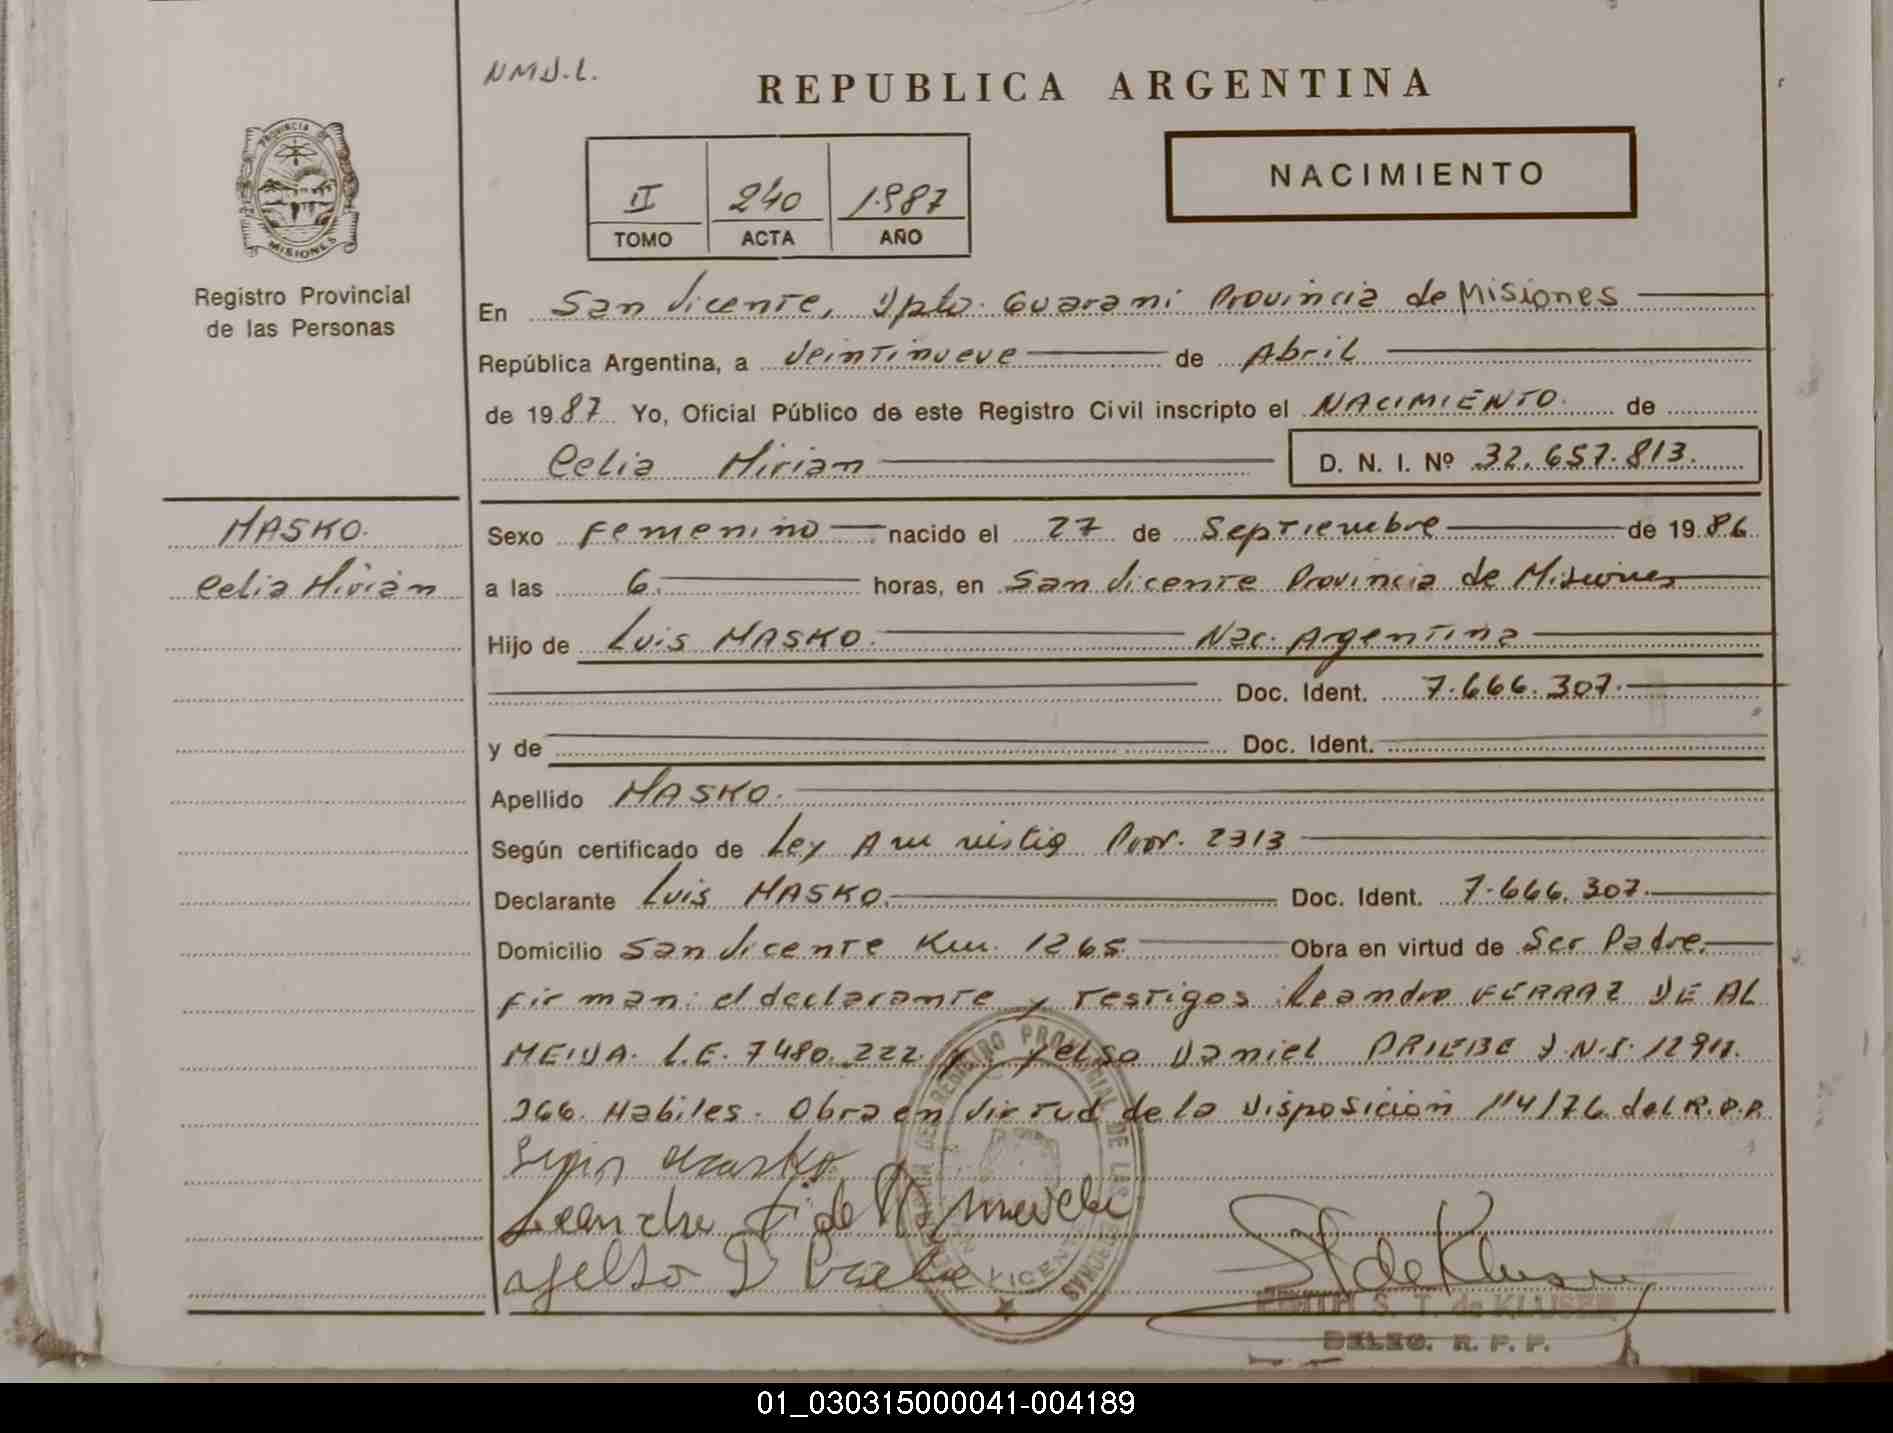 NMD.L.
REPUBLICA ARGENTINA
NACIMIENTO
II 240 1.987
TOMO ACTA AÑO
PROVINCIA DE MISIONES
Registro Provincial
de las Personas
En San Vicente, Dpto. Guarani Provincia de Misiones
República Argentina, a Veintinueve de Abril
de 1987 Yo, Oficial Público de este Registro Civil inscripto el NACIMIENTO de
Celia Mirian D. N. I. Nº 32.657.813.
MASKO.
Celia Mirian
Sexo Femenino nacido el 27 de Septiembre de 1986
a las 6. horas, en San Vicente Provincia de Misiones
Hijo de Luis MASKO. Nac. Argentina
Doc. Ident. 7.666.307.
y de Doc. Ident.
Apellido MASKO.
Según certificado de Ley Amnistia Prov. 2313
Declarante Luis MASKO. Doc. Ident. 7.666.307.
Domicilio San Vicente Km. 1265. Obra en virtud de Ser Padre.
Firman: el declarante y testigos Leandro FERRAZ DE AL
MEIDA. L.E. 7480.222. y Yelso Daniel PRIEBE D.N.I.
266. Habiles. Obra en Virtud de la Disposición 114/76 del R.P.P.
Luis Masko
Leandro F. de Almeida
Yelso D Priebe
S T de Kluser
EDITH S. T. de KLUSER
DELEG. R. P. P.
01_030315000041-004189